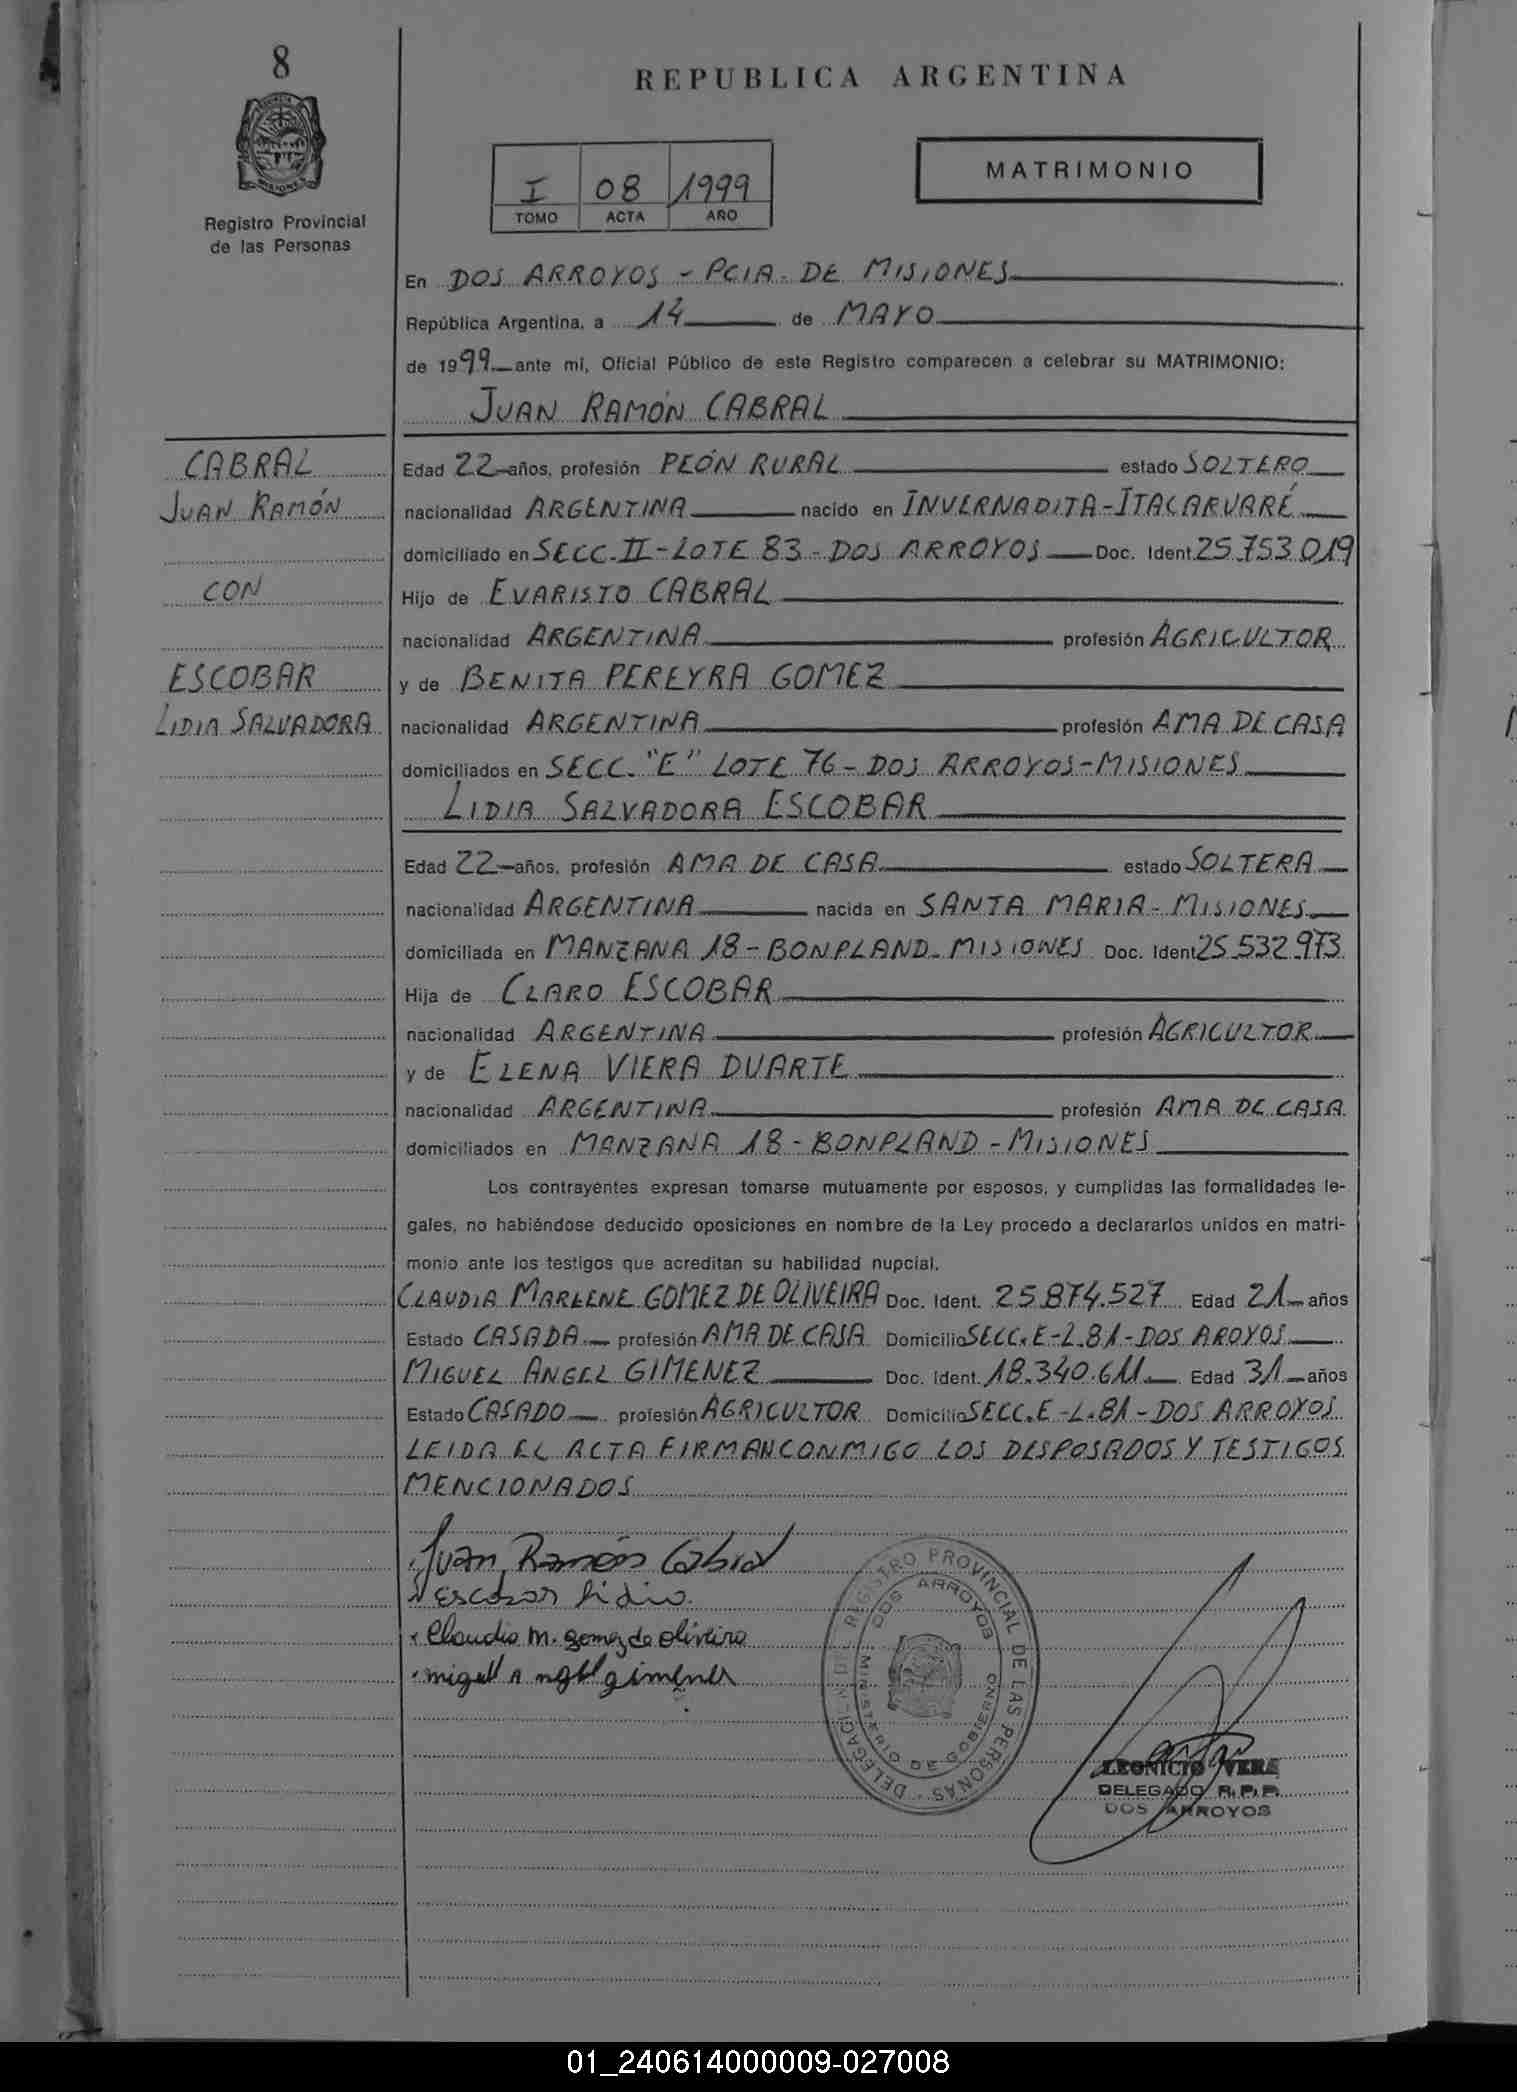 8
REPUBLICA ARGENTINA
MISIONES
Registro Provincial
de las Personas
I 08 1999
TOMO ACTA AÑO
MATRIMONIO
En DOS ARROYOS - PCIA. DE MISIONES
República Argentina, a 14 de MAYO
de 1999 ante mi, Oficial Público de este Registro comparecen a celebrar su MATRIMONIO:
JUAN RAMÓN CABRAL
CABRAL
JUAN RAMÓN
CON
ESCOBAR
LIDIA SALVADORA
Edad 22 años, profesión PEÓN RURAL estado SOLTERO
nacionalidad ARGENTINA nacido en INVERNADITA-ITACARUARÉ
domiciliado en SECC. II - LOTE 83 - DOS ARROYOS Doc. Ident. 25.753.019
Hijo de EVARISTO CABRAL
nacionalidad ARGENTINA profesión AGRICULTOR
y de BENITA PEREYRA GOMEZ
nacionalidad ARGENTINA profesión AMA DE CASA
domiciliados en SECC. "E" LOTE 76 - DOS ARROYOS-MISIONES
LIDIA SALVADORA ESCOBAR
Edad 22 años, profesión AMA DE CASA estado SOLTERA
nacionalidad ARGENTINA nacida en SANTA MARIA - MISIONES
domiciliada en MANZANA 18 - BONPLAND - MISIONES Doc. Ident 25.532.973
Hija de CLARO ESCOBAR
nacionalidad ARGENTINA profesión AGRICULTOR
y de ELENA VIERA DUARTE
nacionalidad ARGENTINA profesión AMA DE CASA
domiciliados en MANZANA 18 - BONPLAND - MISIONES
Los contrayentes expresan tomarse mutuamente por esposos, y cumplidas las formalidades le-
gales, no habiéndose deducido oposiciones en nombre de la Ley procedo a declararlos unidos en matri-
monio ante los testigos que acreditan su habilidad nupcial.
CLAUDIA MARLENE GOMEZ DE OLIVEIRA Doc. Ident. 25.874.527 Edad 21 años
Estado CASADA profesión AMA DE CASA Domicilio SECC. E - L. 81 - DOS AROYOS
MIGUEL ANGEL GIMENEZ Doc. Ident. 18.340.611 Edad 31 años
Estado CASADO profesión AGRICULTOR Domicilio SECC. E - L. 81 - DOS ARROYOS
LEIDA EL ACTA FIRMAN CONMIGO LOS DESPOSADOS Y TESTIGOS
MENCIONADOS
Juan Ramón Cabral
Escobar Lidia
Claudia M. gomez de oliveira
miguel Angel gimenez
DELEGACION DEL REGISTRO PROVINCIAL DE LAS PERSONAS
DOS ARROYOS
MINISTERIO DE GOBIERNO
LEONICIO VERA
DELEGADO R.P.P.
DOS ARROYOS
01_240614000009-027008